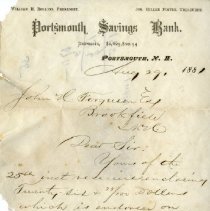 William H. Rollins, President. Jos. Hiller Foster, Treasurer
Portsmouth Savings Bank.
Portsmouth, N. H.
Aug 29, 1881
John H. Ferguson Esq
Brookfield
Dear Sir:
Yours of the
25th inst received enclosing
Twenty, six & Dollars
which is endorsed on